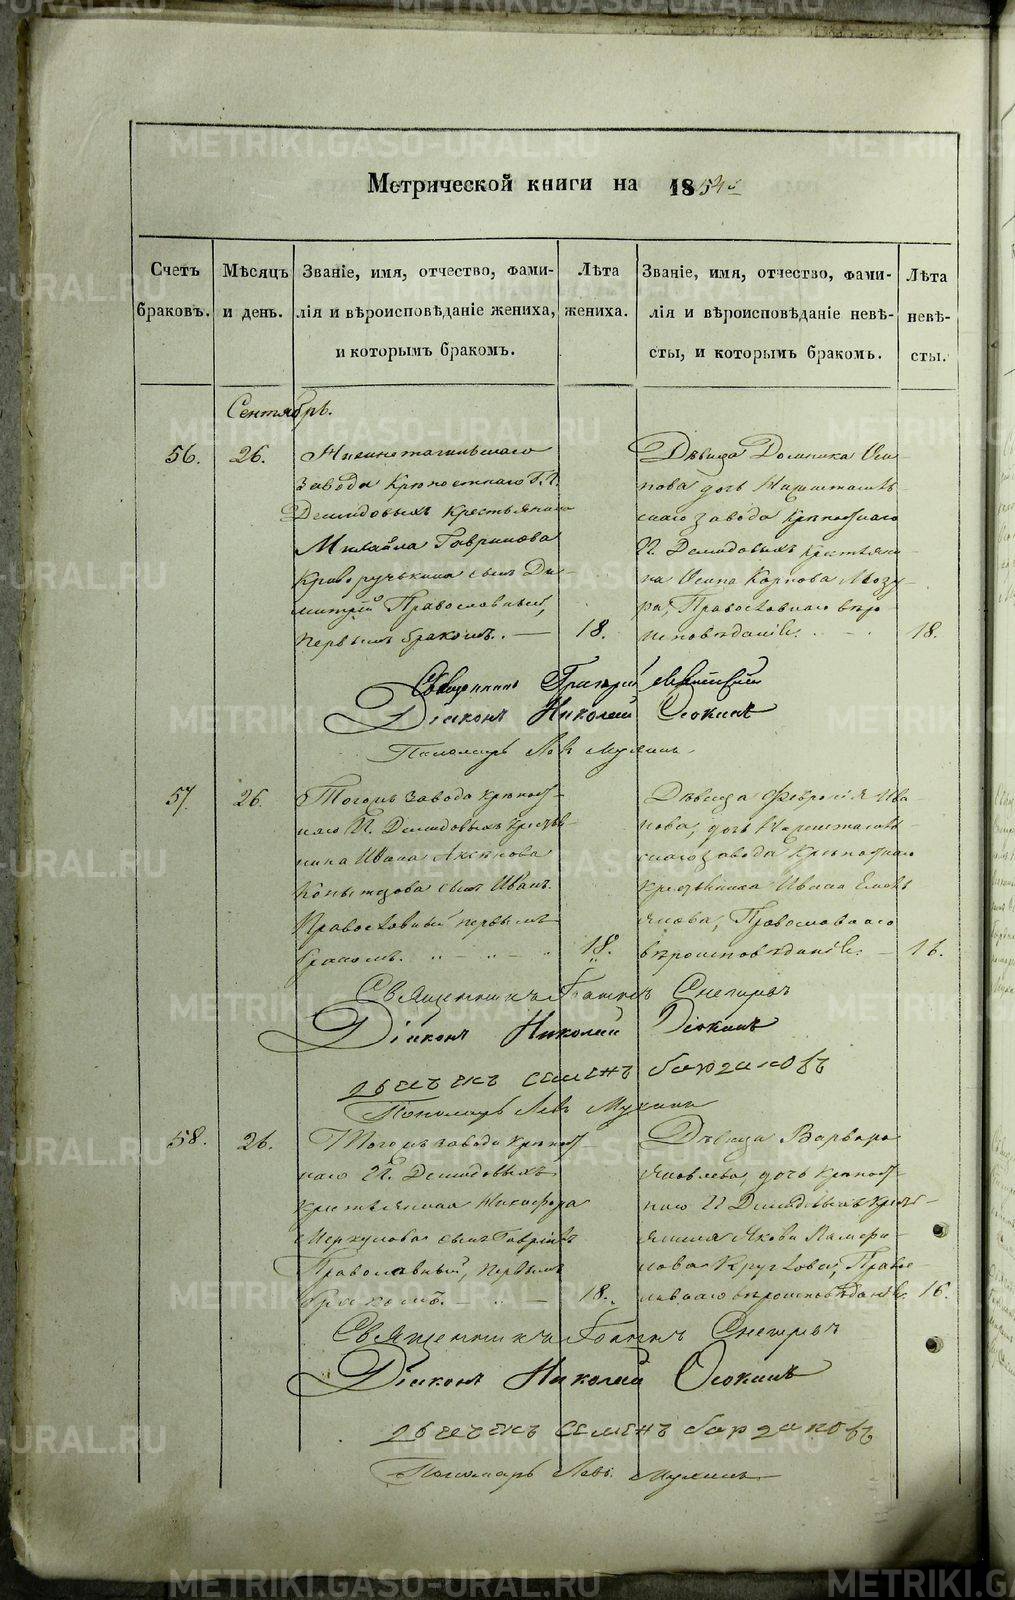 Метрической книги на 1854й
Счетъ браковъ.
Мѣсяцъ и день.
Званіе, имя, отчество, фамилія и вѣроисповѣданіе жениха, и которымъ бракомъ.
Лѣта жениха.
Званіе, имя, отчество, фамилія и вѣроисповѣданіе невѣсты, и которымъ бракомъ.
Лѣта невѣсты.
Сентябрь.
56.
26.
Нижнетагильскаго
завода крѣпостнаго Г.П.
Демидовыхъ крестьянина
Михайла Гаврилова
Криворучькина сынъ Ди-
митрій Православный,
первымъ бракомъ. —
18.
Дѣвица Домника Оси-
пова дочь Нижнетагиль-
скаго завода крѣпостнаго
П. Демидовыхъ крестьяни-
на Осипа Карпова Мозу-
ра, Православнаго вѣро-
исповѣданія.
18.
Священникъ Григорій
Діаконъ Николай Осокинъ
Пономарь Левъ Мухинъ
57.
26.
Тогожъ завода крѣпост-
наго П. Демидовыхъ крестья-
нина Ивана Аксенова
Копытова сынъ Иванъ
Православный первымъ
бракомъ.
18.
Дѣвица Февронія Ива-
нова, дочь Нижнетагиль-
скаго завода крѣпостнаго
крестьянина Ивана Емель-
янова, Православнаго
вѣроисповѣданія. —
16.
Священникъ Іоаннъ Снегиревъ
Діаконъ Николай Осокинъ
дьячекъ Семенъ
Пономарь Левъ Мухинъ
58.
26.
Тогожъ завода крѣпост-
наго П. Демидовыхъ
крестьянина Никифора
Меркулова сынъ Гавріилъ
Православный, первымъ
бракомъ. —
18.
Дѣвица Варвара
Яковлева, дочь крѣпост-
наго П Демидовыхъ кресть-
янина Якова Памфи-
лова Круглова, Право-
славнаго вѣроисповѣданія.
16.
Священникъ Іоаннъ Снегиревъ
Діаконъ Николай Осокинъ
дьячекъ Семенъ
Пономарь Левъ Мухинъ
METRIKI.GASO-URAL.RU